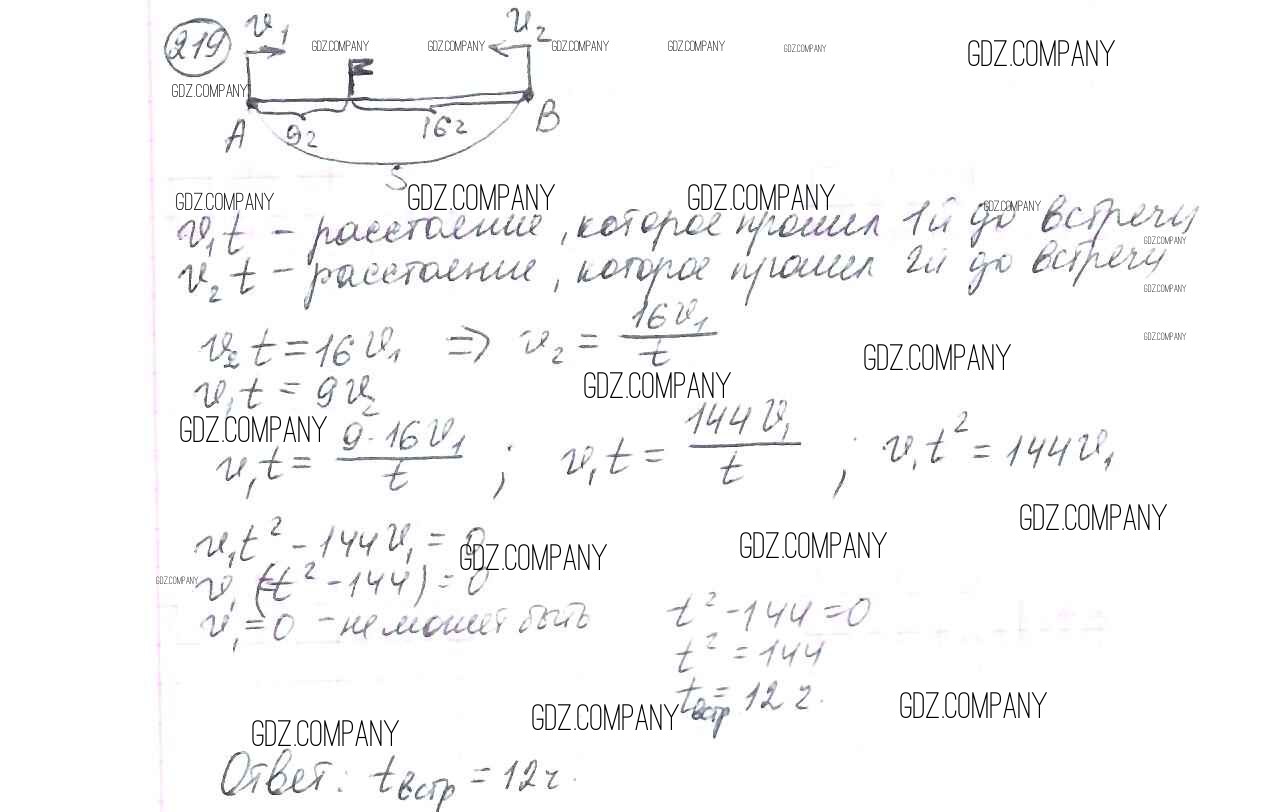 219 v₁ v₂
GDZ.COMPANY GDZ.COMPANY GDZ.COMPANY GDZ.COMPANY GDZ.COMPANY GDZ.COMPANY
GDZ.COMPANY
A 9ч 16ч B
S
GDZ.COMPANY GDZ.COMPANY GDZ.COMPANY GDZ.COMPANY
v₁t – расстояние, которое прошел 1й до встречи
GDZ.COMPANY
v₂t – расстояние, которое прошел 2й до встречи
GDZ.COMPANY
v₂t = 16v₁ ⇒ v₂ = 16v₁/t
GDZ.COMPANY GDZ.COMPANY
v₁t = 9v₂
GDZ.COMPANY
GDZ.COMPANY
v₁t = 9·16v₁/t ; v₁t = 144v₁/t ; v₁t² = 144v₁
GDZ.COMPANY
v₁t² – 144v₁ = 0
GDZ.COMPANY GDZ.COMPANY
GDZ.COMPANY
v₁(t² – 144) = 0
v₁ = 0 – не может быть t² – 144 = 0
t² = 144
tвстр = 12 ч.
GDZ.COMPANY GDZ.COMPANY GDZ.COMPANY
Ответ: tвстр = 12ч.